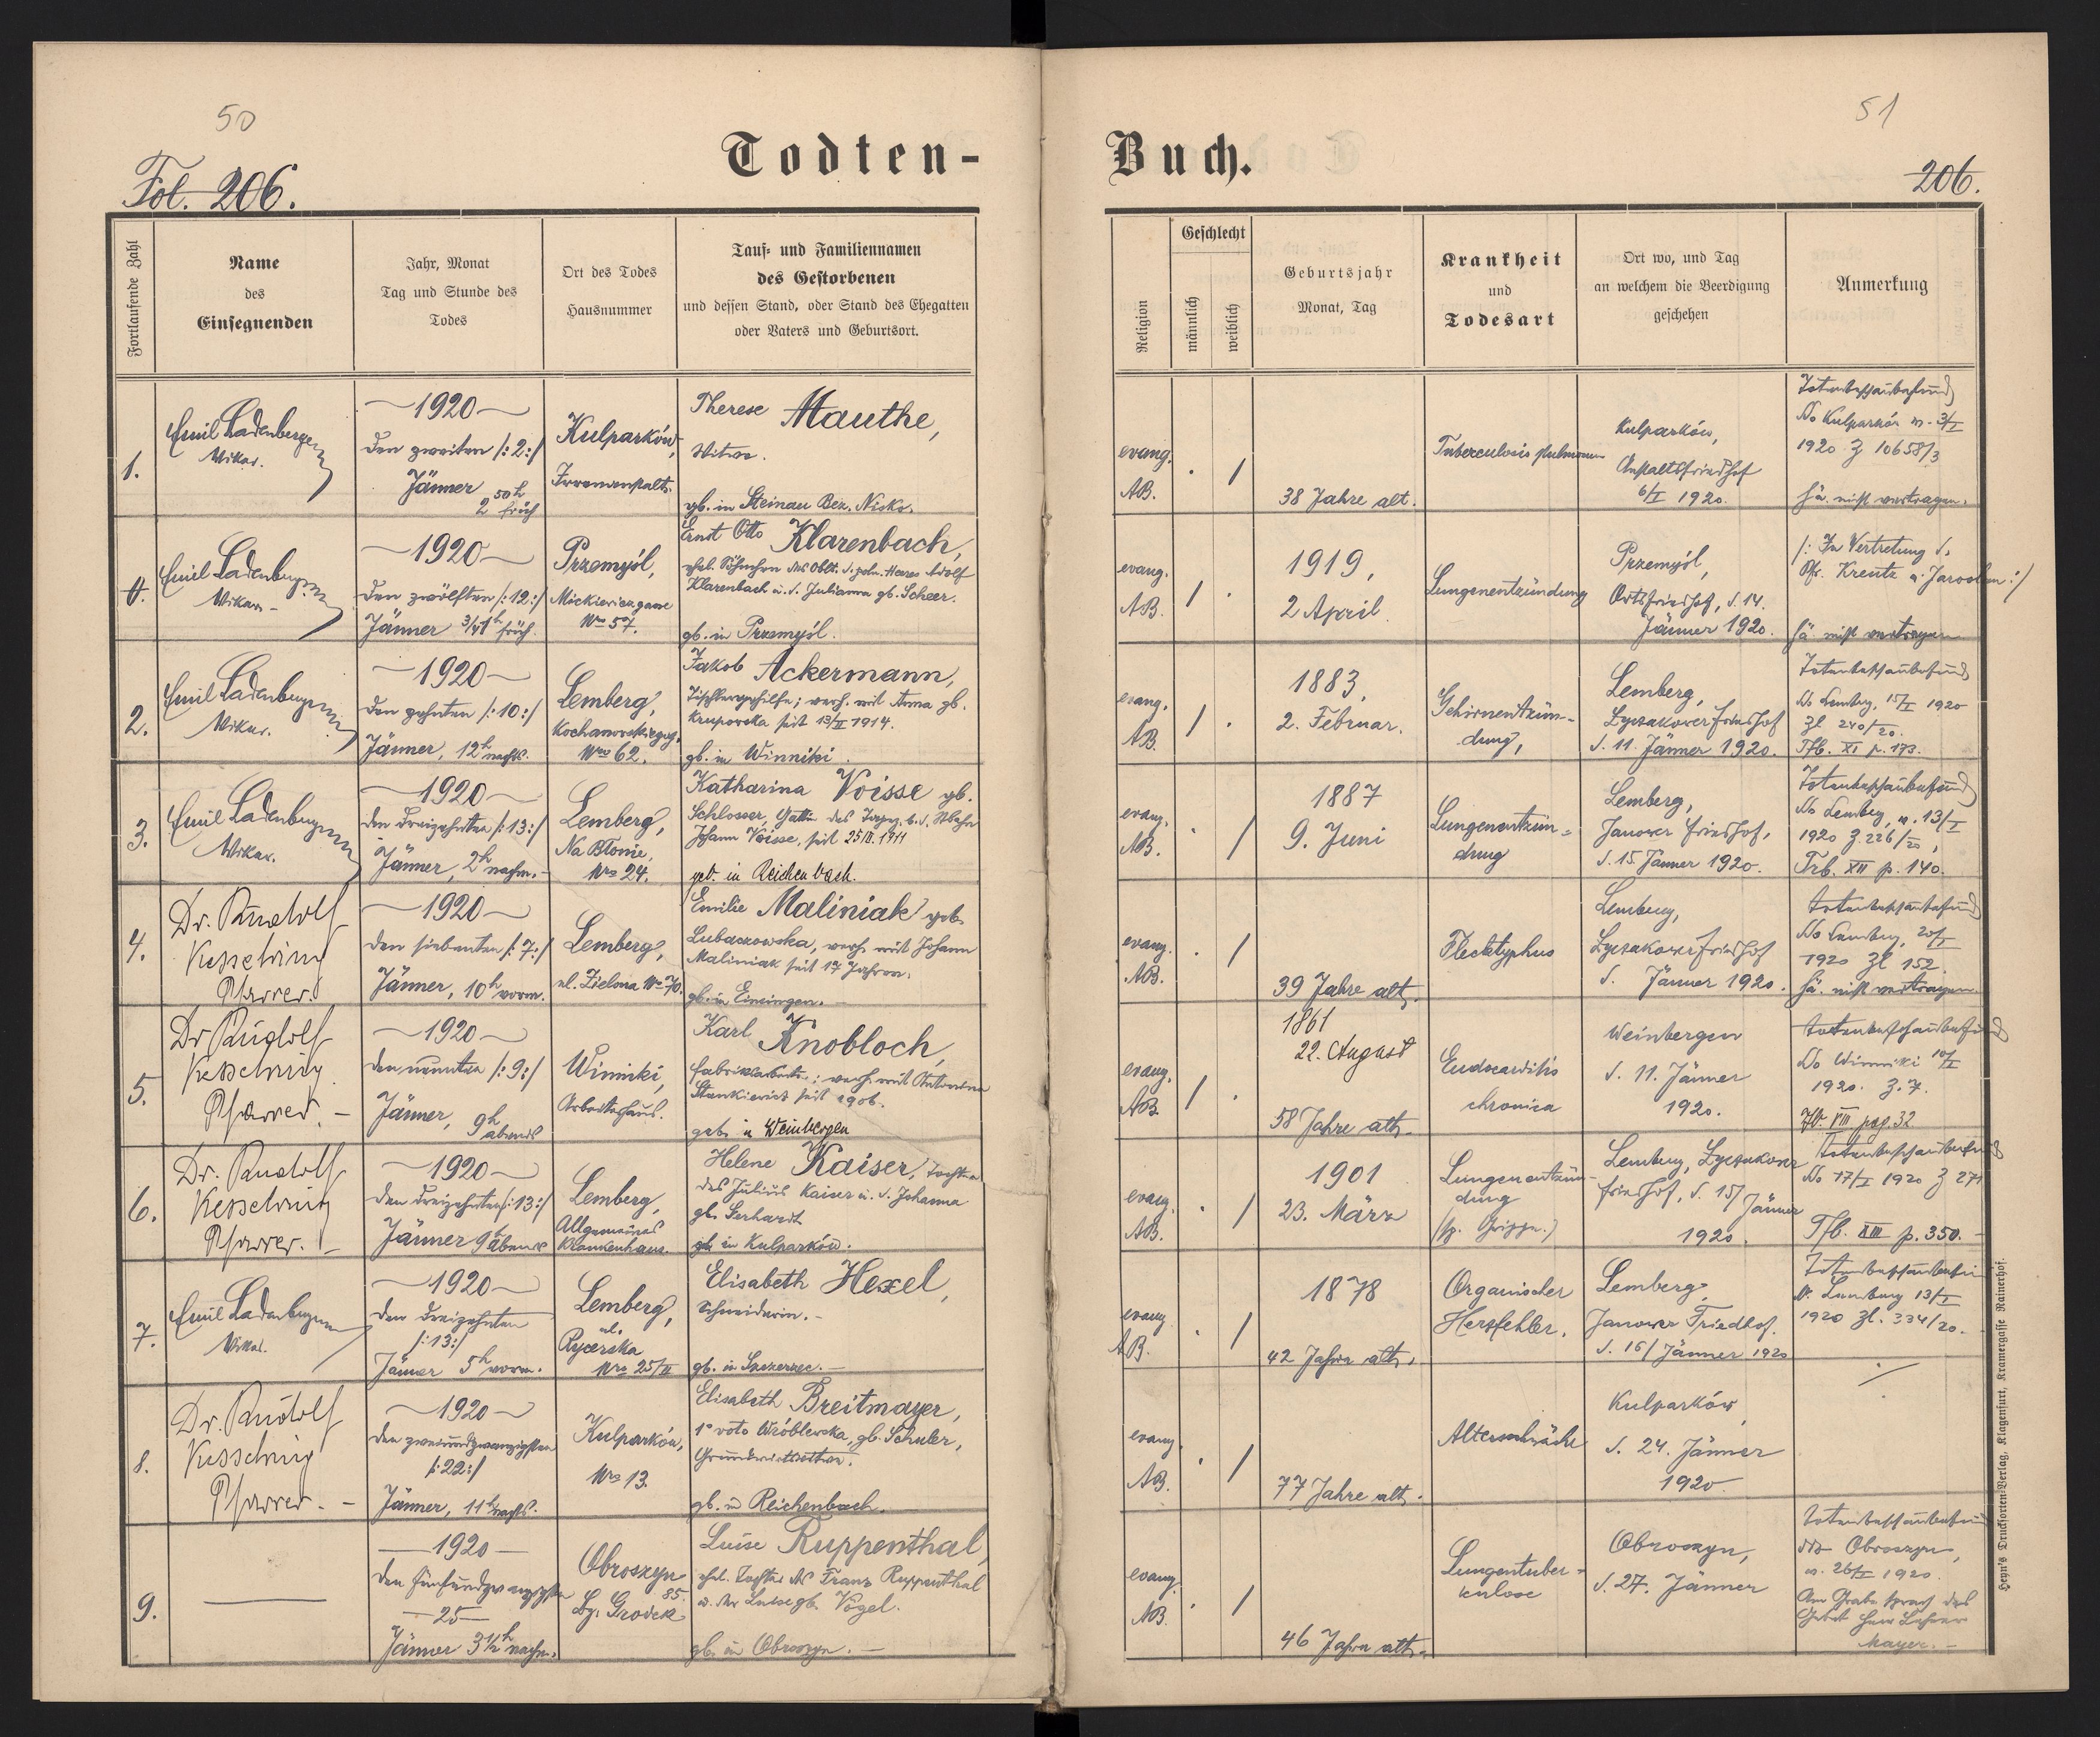 50
Fol. 206.
Todten-
Fortlaufende Zahl
Name
des
Einsegnenden
Jahr, Monat
Tag und Stunde des
Todes
Ort des Todes
Hausnummer
Tauf- und Familiennamen
des Gestorbenen
und dessen Stand, oder Stand des Ehegatten
oder Vaters und Geburtsort.
1.
Emil Ladenberger
Vikar.
1920
den zweiten /:2:/
Jänner
2 50 h früh
Kulparków,
Irrenanstalt.
Therese Mauthe,
Witwe.
gb. in Steinau Bez. Nisko.
0.
Emil Ladenberger
Vikar
1920
den zwölften /:12:/
Jänner 3/4 1 h früh.
Przemyśl,
Mickiewiczgasse
Nro 57.
Ernst Otto Klarenbach,
ehel. Söhnchen des Oblt. d. poln. Heeres Adolf
Klarenbach u. d. Julianna gb. Scheer.
gb. in Przemyśl.
2.
Emil Ladenberger
Vikar.
1920
den zehnten /:10:/
Jänner, 12 h nachts.
Lemberg,
Kochanowskigasse
Nro 62.
Jakob Ackermann,
Tischlergehilfe; verh. mit Anna gb.
Krupowska seit 1914.
gb. in Winniki.
3.
Emil Ladenberger
Vikar.
1920
den dreizehnten /:13:/
Jänner, 2 h nachm.
Lemberg,
Na Błonie,
Nro 24.
Katharina Voisse gb.
Schlosser, Gattin des
Johann Voisse, seit 1911
geb. in Reichenbach.
4.
Dr. Rudolf
Kesselring
Pfarrer.
1920
den siebenten /:7:/
Jänner, 10 h vorm.
Lemberg,
ul. Zielona Nro 70.
Emilie Maliniak geb.
Lubaczowska, verh. mit Johann
Maliniak seit 17 Jahren.
gb. in Einsingen.
5.
Dr Rudolf
Kesselring
Pfarrer.
1920
den neunten /:9:/
Jänner, 9 h
abends
Winniki,
Arbeiterhaus.
Karl Knobloch,
Fabriksarbeiter; verh. mit Antonina
Stankiewicz seit 1906.
geb. in Weinbergen
6.
Dr. Rudolf
Kesselring
Pfarrer.
1920
den dreizehnten /:13:/
Jänner 9 h abends
Lemberg,
Allgemeines
Krankenhaus.
Helene Kaiser, Tochter
des Julius Kaiser u. d. Johanna
gb. Gerhardt
gb. in Kulparków.
7.
Emil Ladenberger
Vikar.
1920
den dreizehnten
/:13:/
Jänner 5 h vorm.
Lemberg,
ul.
Rycerska
Nro 25/II
Elisabeth Hexel,
Schneiderin.
gb. in Szczerzec.
8.
Dr. Rudolf
Kesselring
Pfarrer.
1920
den zweiundzwanzigsten
/:22:/
Jänner, 11 h nachts.
Kulparków,
Nro 13.
Elisabeth Breitmayer,
1° voto Wróblewska, gb. Schuler,
Grundwirtswitwe.
gb. in Reichenbach.
9.
1920
den fünfundzwanzigsten
25
Jänner 3 1/2 h nachm.
Obroszyn
85.
Bz. Grodek
Luise Ruppenthal,
ehel. Tochter des Franz Ruppenthal
u. der Luise gb. Vogel.
gb. in Obroszyn.
51
Buch.
206.
Religion
Geschlecht
männlich
weiblich
Geburtsjahr
Monat, Tag
Krankheit
und
Todesart
Ort wo, und Tag
an welchem die Beerdigung
geschehen
Anmerkung
evang.
AB.
38 Jahre alt.
Tuberculosis pulmonum
Kulparków,
Anstaltsfriedhof
6/I 1920.
Totenbeschaubefund
Do Kulparków v. 3/I
1920 Z 10658/3
Hä. nicht vertragen.
evang.
AB.
1919,
2 April.
Lungenentzündung
Przemyśl,
Ortsfriedhof, d. 14.
Jänner 1920.
/: In Vertretung d.
Pfr. Kreutz a. Jaroslau :/
Hä nicht vertragen
evang.
AB.
1883,
2. Februar.
Gehirnentzün-
dung,
Lemberg,
Lyczakower Friedhof
d. 11. Jänner 1920.
Totenbeschaubefund
Do Lemberg, 15/I 1920
Zl. 240/20.
Tfb. XI p. 173.
evang.
AB.
1887
9. Juni
Lungenentzün-
dung
Lemberg,
Janower Friedhof,
d. 15 Jänner 1920.
Totenbeschaubefund
Do Lemberg, v. 13/I
1920 Z. 226/20,
Trb. XII p. 140.
evang.
AB.
39 Jahre alt.
Flecktyphus
Lemberg,
Lyczakower Friedhof
d. Jänner 1920.
Totenbeschaubefund
Do Lemberg, 20/I
1920 Zl 152.
Hä. nicht vertragen.
evang.
AB.
1861
22. August
58 Jahre alt.
Endocarditis
chronica
Weinbergen
d. 11. Jänner
1920.
Totenbeschaubefund
Do Winniki 10/I
1920. Z. 7.
Tfb. VIII pag. 32
evang.
AB.
1901
23. März
Lungenentzün-
dung
(sp. Grippe.)
Lemberg, Lyczakower
Friedhof, d. 15/ Jänner
1920.
Totenbeschaubefund
Do 17/I 1920 Z 271
Tfb. XIII p. 350.
evang.
AB.
1878
42 Jahre alt.
Organischer
Herzfehler.
Lemberg,
Janower Friedhof.
d. 16/ Jänner 1920
Totenbeschaubefund
Lemberg 13/I
1920 Zl. 334/20.
evang.
AB.
77 Jahre alt.
Altersschwäche
Kulparków,
d. 24. Jänner
1920.
evang.
AB.
46 Jahre alt.
Lungentuber-
kulose
Obroszyn,
d. 27. Jänner
Totenbeschaubefund
Obroszyn,
v. 26/I 1920.
Am Grabe sprach das
Gebet Herr Lehrer
Mayer.
Heyn's Drucksorten-Verlag, Klagenfurt, Kramergasse Rainerhof.